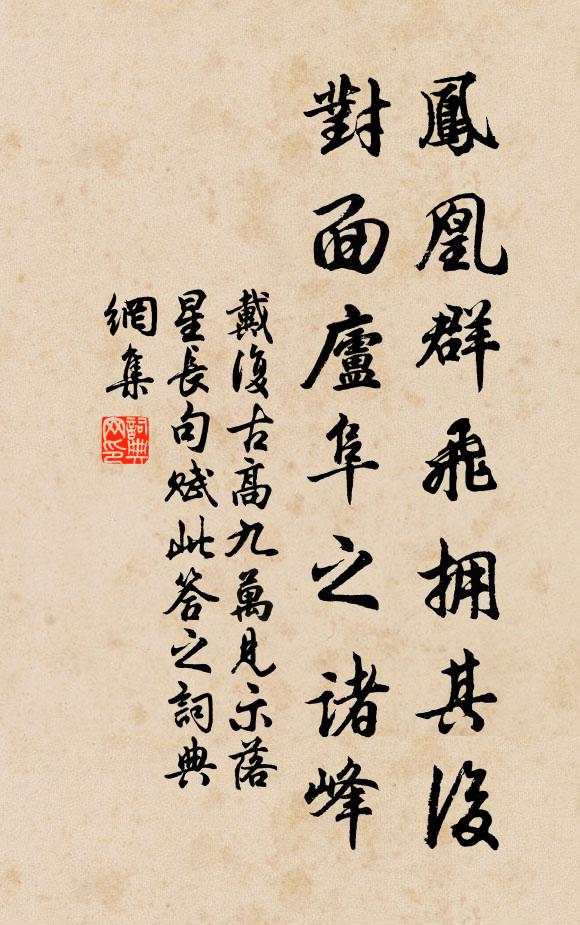 鳳凰群飛擁其後
對面廬阜之諸峰
戴復古高九萬見示落
星長句賦此答之詞典
網集
詞典網印